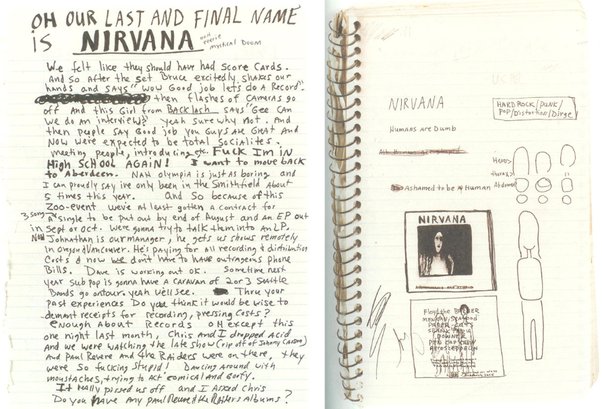 OH OUR LAST AND FINAL NAME
is NIRVANA
mystical Doom
We felt like they should have had score cards.
And so after the set Bruce excitedly shakes our
hands and says "wow Good job lets do a Record".
then flashes of cameras go
off And this Girl from Backlash says "Gee can
we do an interview"? yeah sure why not. And
then people say Good job you Guys are Great And
Now were expected to be total socialites.
meeting people, introducing etc. Fuck Im in
High School Again! I want to move back
to Aberdeen. NAH olympia is just as boring and
I can proudly say ive only been in the Smithfield About
5 times this year. And so because of this
zoo-event weve At least gotten a contract for
3 song
a single to be put out by end of August and an EP out
in Sept or oct. Were gonna try to talk them into an LP.
Now Johnathan is our manager, he gets us shows remotely
in oregon & vancouver. He's paying for all recording & distribution
Costs & now we dont have to have outrageous phone
Bills. Dave is working out ok. Sometime next
year Sub pop is gonna have A caravan of 2 or 3 Seattle
Bands go on tour. yeah well see. Thru your
past experiences Do you think it would be wise to
demand receipts for recording, pressing costs?
enough About Records oh except this
one night last month, Chris and I dropped acid
And we were watching the late show (rip off of Johnny Carson)
and Paul Revere And the Raiders were on there, they
were So fucking stupid! Dancing around with
moustaches, trying to act comical and Goofy.
It really pissed us off and I Asked Chris
Do you have Any Paul Revere & the Raiders Albums?
NIRVANA
HARD ROCK/PUNK/
POP/Distortion/Dirge
Humans are Dumb
Heads
thorax
Ashamed to be A Human
Abdomen
NIRVANA
Floyd the BARBER
mexican SeAfood
PAPER CUTS
SPANK THRU
DOWNER
PEN CAP CHEW
AEROZEPPELIN